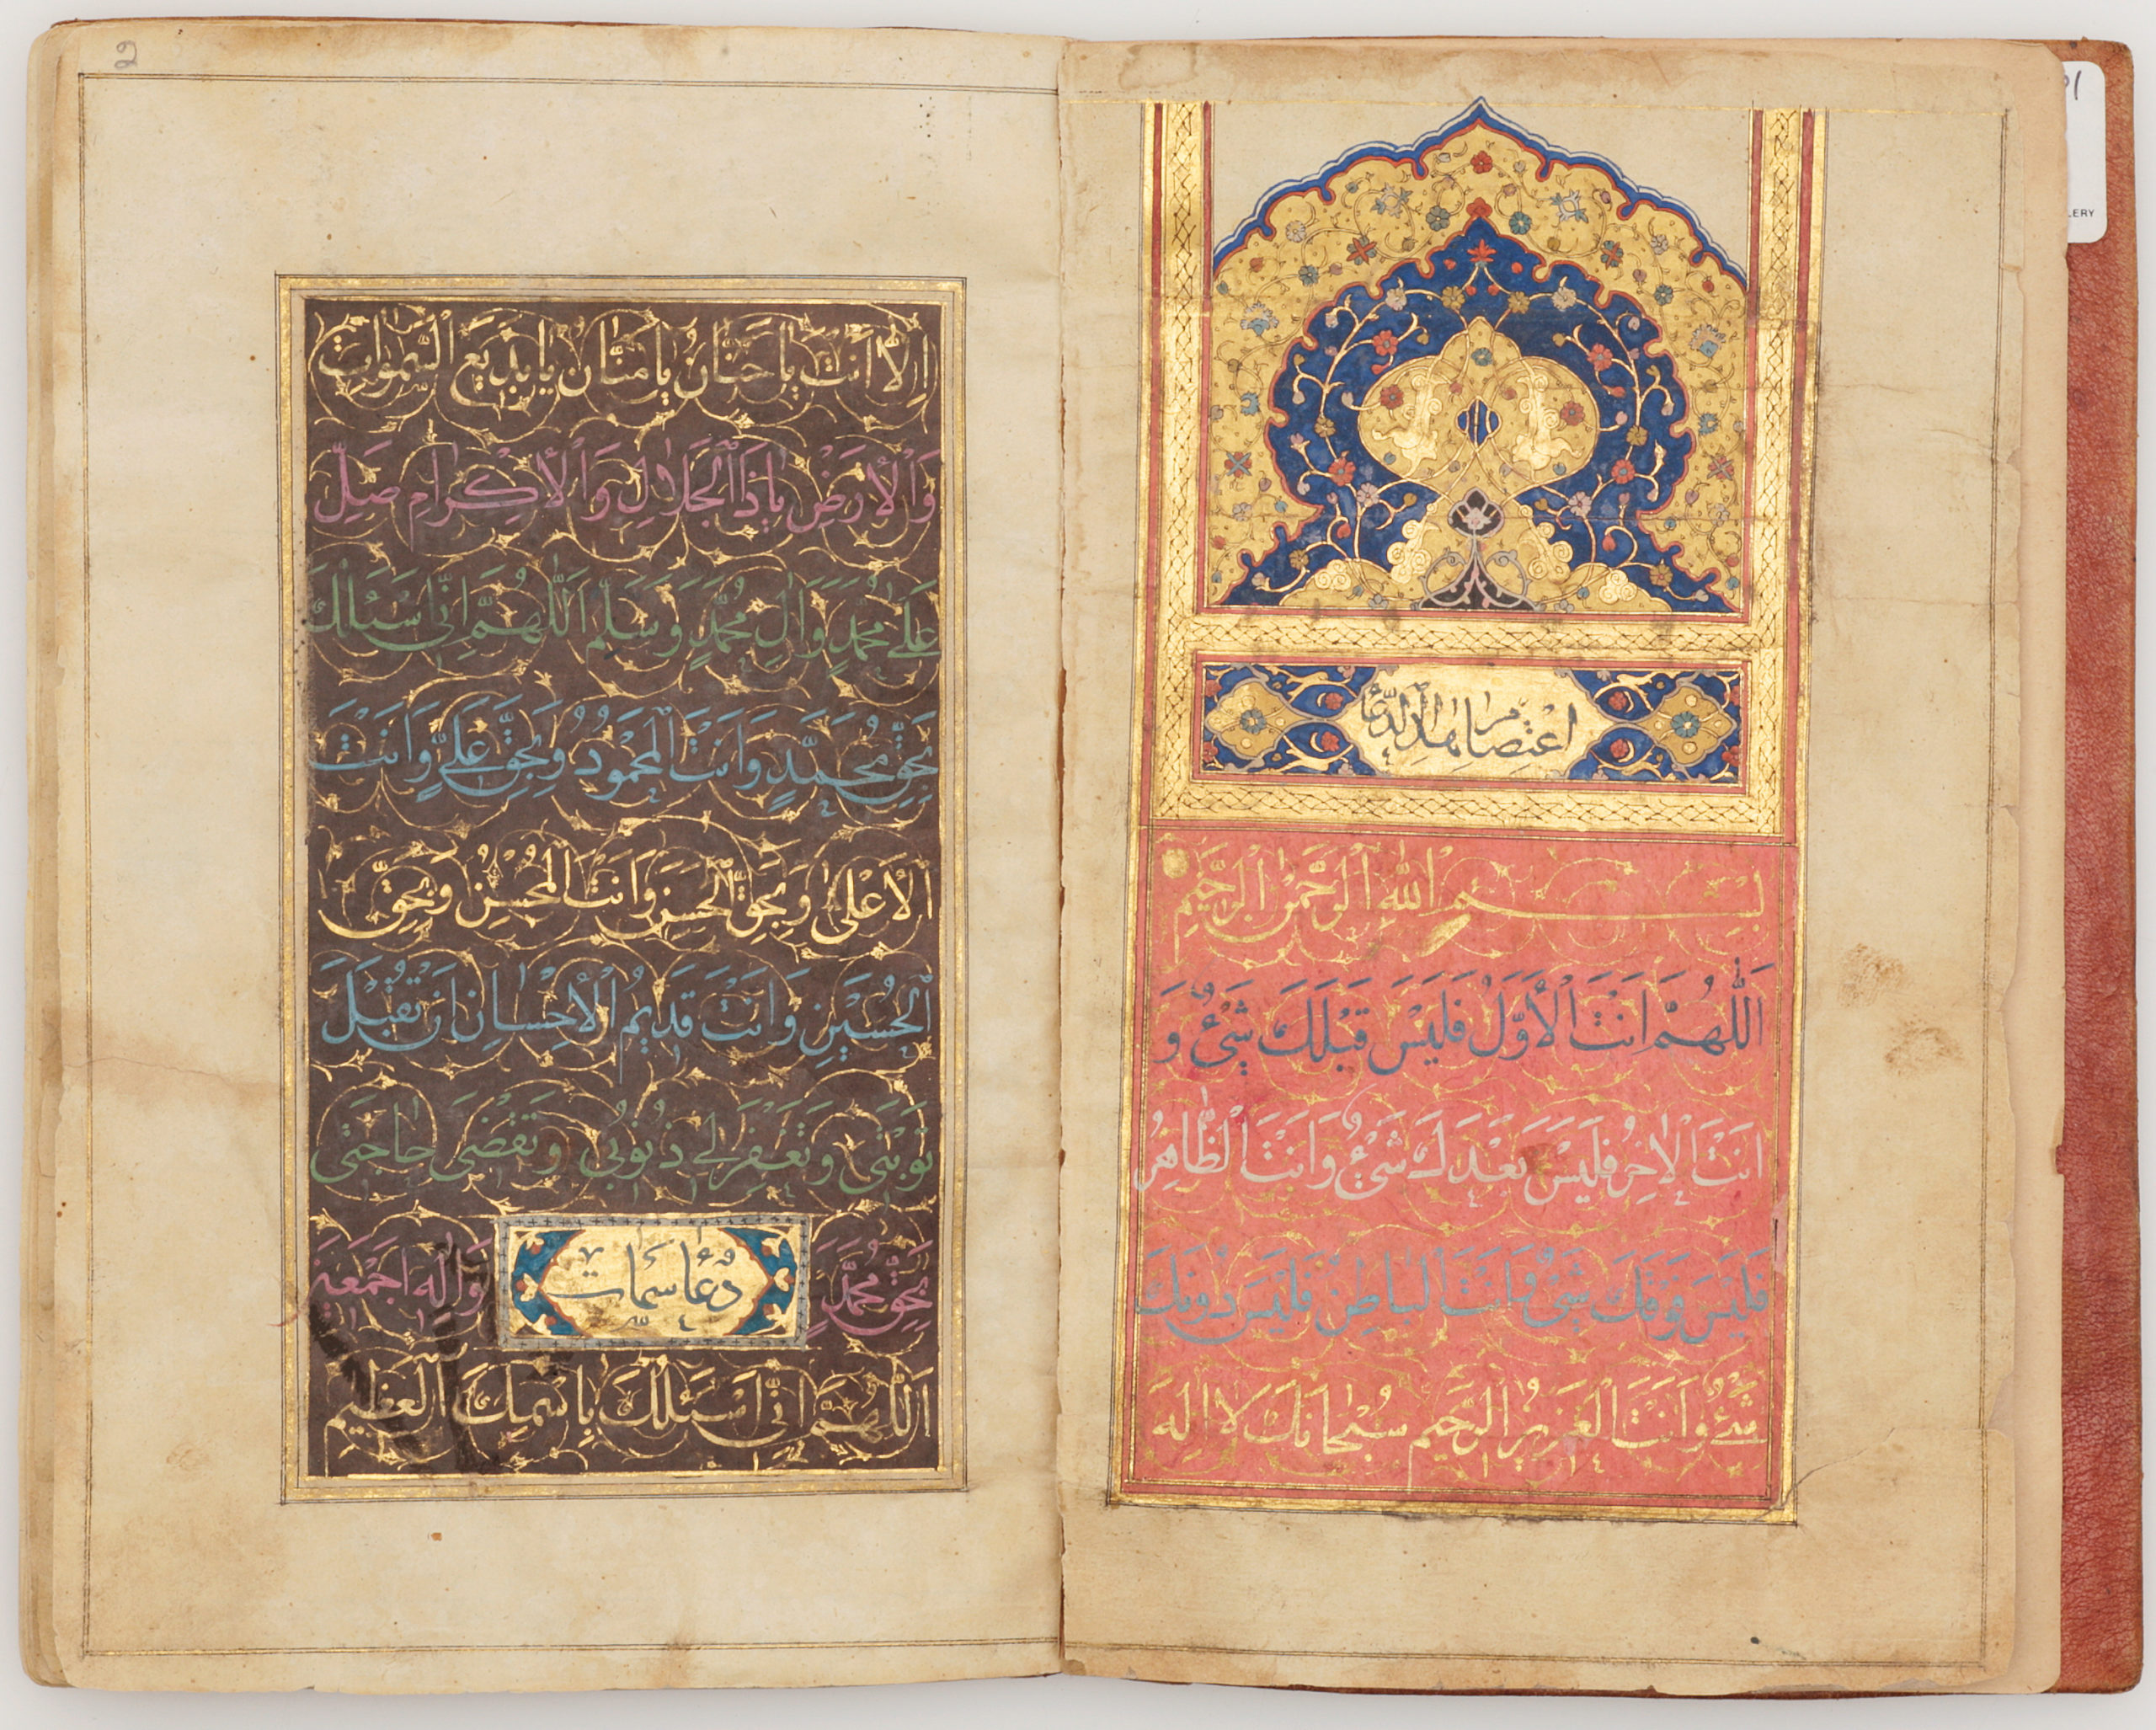 اعتصام هذا الدعاء
بِسْمِ اللهِ الرَّحْمٰنِ الرَّحِيمِ
اَللّٰهُمَّ اَنْتَ الْاَوَّلُ فَلَيْسَ قَبْلَكَ شَيْءٌ وَ
اَنْتَ الْاٰخِرُ فَلَيْسَ بَعْدَكَ شَيْءٌ وَاَنْتَ الظَّاهِرُ
فَلَيْسَ فَوْقَكَ شَيْءٌ وَاَنْتَ الْبَاطِنُ فَلَيْسَ دُونَكَ
شَيْءٌ وَاَنْتَ الْعَزِيزُ الرَّحِيمُ سُبْحَانَكَ لَا اِلٰهَ
اِلَّا اَنْتَ يَا حَنَّانُ يَا مَنَّانُ يَا بَدِيعَ السَّمٰوَاتِ
وَالْاَرْضِ يَا ذَا الْجَلَالِ وَالْاِكْرَامِ صَلِّ
عَلٰى مُحَمَّدٍ وَاٰلِ مُحَمَّدٍ وَسَلِّمْ اَللّٰهُمَّ اِنِّي اَسْئَلُكَ
بِحَقِّ مُحَمَّدٍ وَاَنْتَ الْمَحْمُودُ وَبِحَقِّ عَلِيٍّ وَاَنْتَ
الْاَعْلٰى وَبِحَقِّ الْحَسَنِ وَاَنْتَ الْمُحْسِنُ وَبِحَقِّ
الْحُسَيْنِ وَاَنْتَ قَدِيمُ الْاِحْسَانِ اَنْ تَقْبَلَ
تَوْبَتِي وَتَغْفِرَ لِي ذُنُوبِي وَتَقْضِيَ حَاجَتِي
بِحَقِّ مُحَمَّدٍ وَاٰلِهِ اَجْمَعِينَ
دُعَاء سَمَات
اَللّٰهُمَّ اِنِّي اَسْئَلُكَ بِاسْمِكَ الْعَظِيمِ
2
LERY